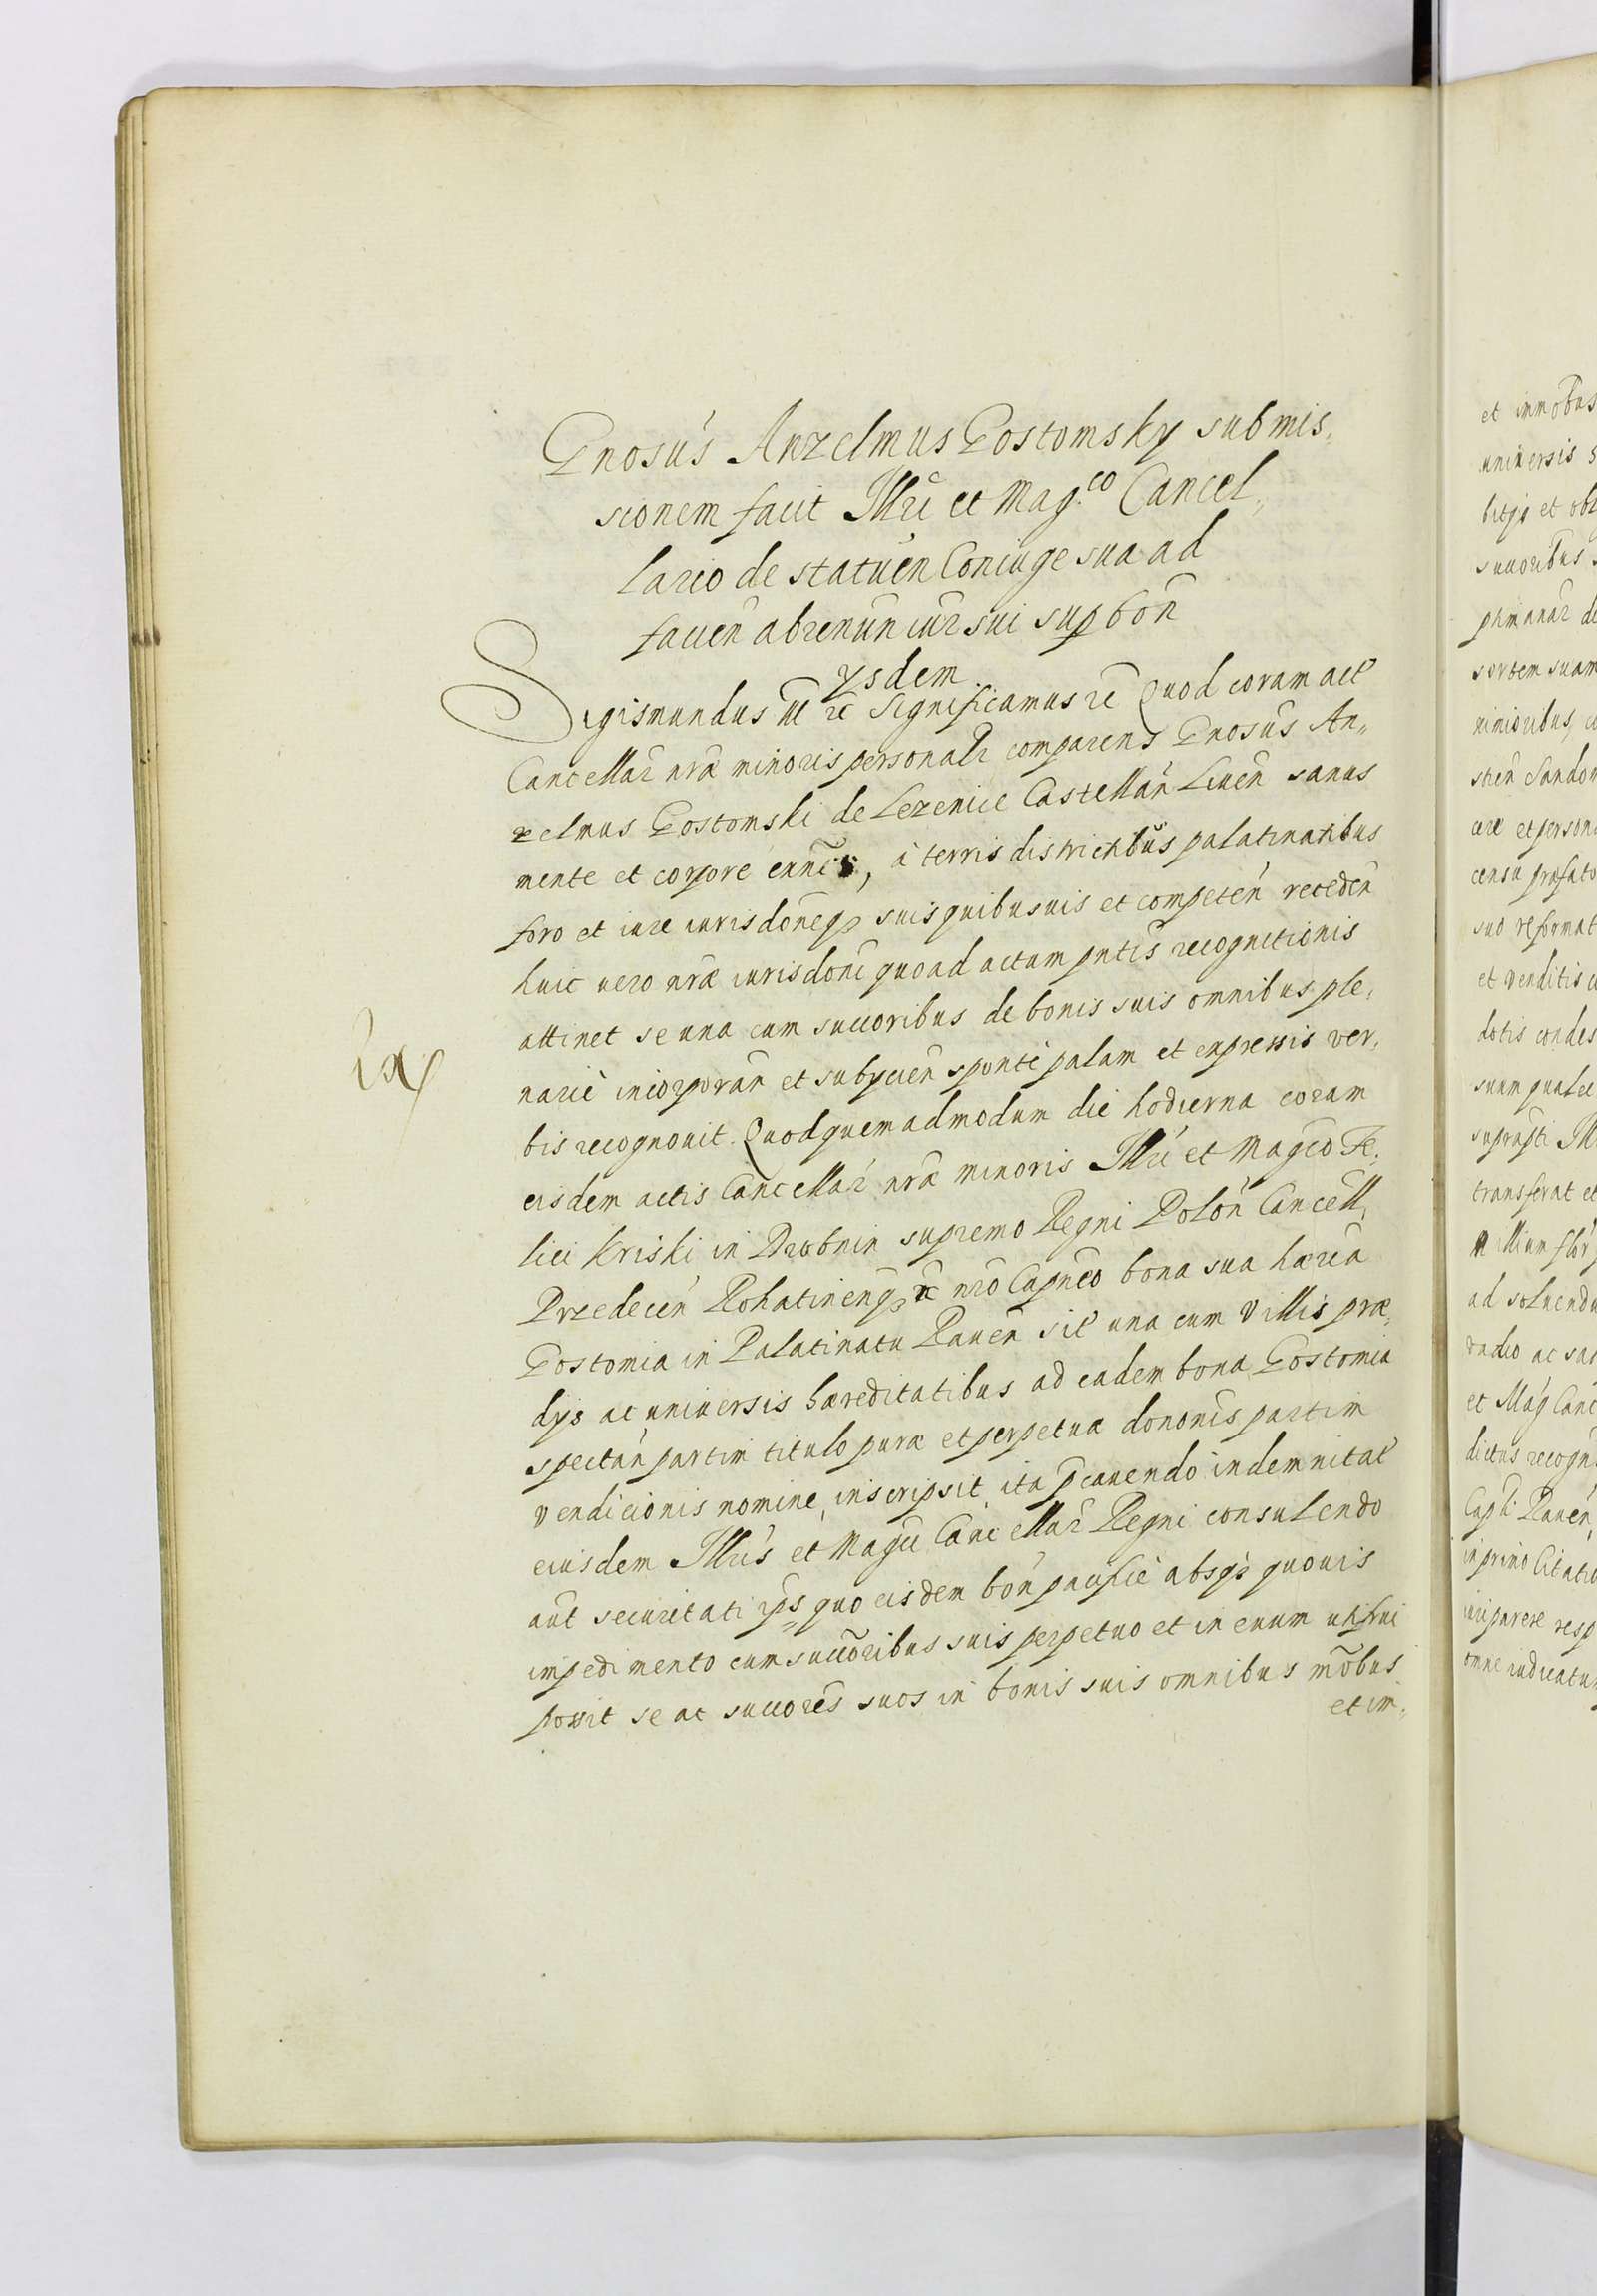 Gnosus Anzelmus Gostomsky submis,
sionem facit Illri et Mag.co Cancel,,
lario de statuen Coniuge sua ad
facien abrenun iur sui sup bon
ysdem
Sigismundus III rc Significamus rc Quod coram act
Cancellar nrae minoris personalr comparens Gnosus An,,
zelmus Gostomski de Lezenice Castellan Liuen sanus
mente et corpore ennes, à terris districtibus palatinatibus
foro et iure iurisdoneqz suis quibusuis et competen receden
huic uero nrae iurisdoni quoad actum pntis recognitionis
attinet se una cum succoribus de bonis suis omnibus ple,
nariè incorporan et subycien spontè palam et expressis ver,
bis recognouit. Quod quemadmodum die hodierna coram
eisdem actis Cancellar nrae minoris Illri et Magco Fe,
lici Kriski in Drobnin supremo Regni Polon Cancell,
Przedecen Rohatinenqz rc nro Capneo bona sua haeria
Gostomia in Palatinatu Rauen sit una cum Villis prae,
dys ac uniuersis haereditatibus ad eadem bona Gostomia
spectan partim titulo purae et perpetuae dononis partim
vendicionis nomine inscripsit, ita pcauendo indemnitat
eiusdem Illris et Magci Cancellar Regni consulendo
aut securitati ips, quo eisdem bon pacificè absqz quouis
impedimento cum succoribus suis perpetuo et in euum uti frui
possit se ac succores suos in bonis suis omnibus mobus
et im,
et immobus
uniuersis s
bitis et obl
succoribus
sortem suam
stien Sandom
cere et person
censu praefato
suo reformat
et venditis
dotis condes
transferat et
ad soluendu
vadio ac
et Mag Canc
dictus recogn
Capli Rauen
in primo Citatio
parere resp
omne iudicatu